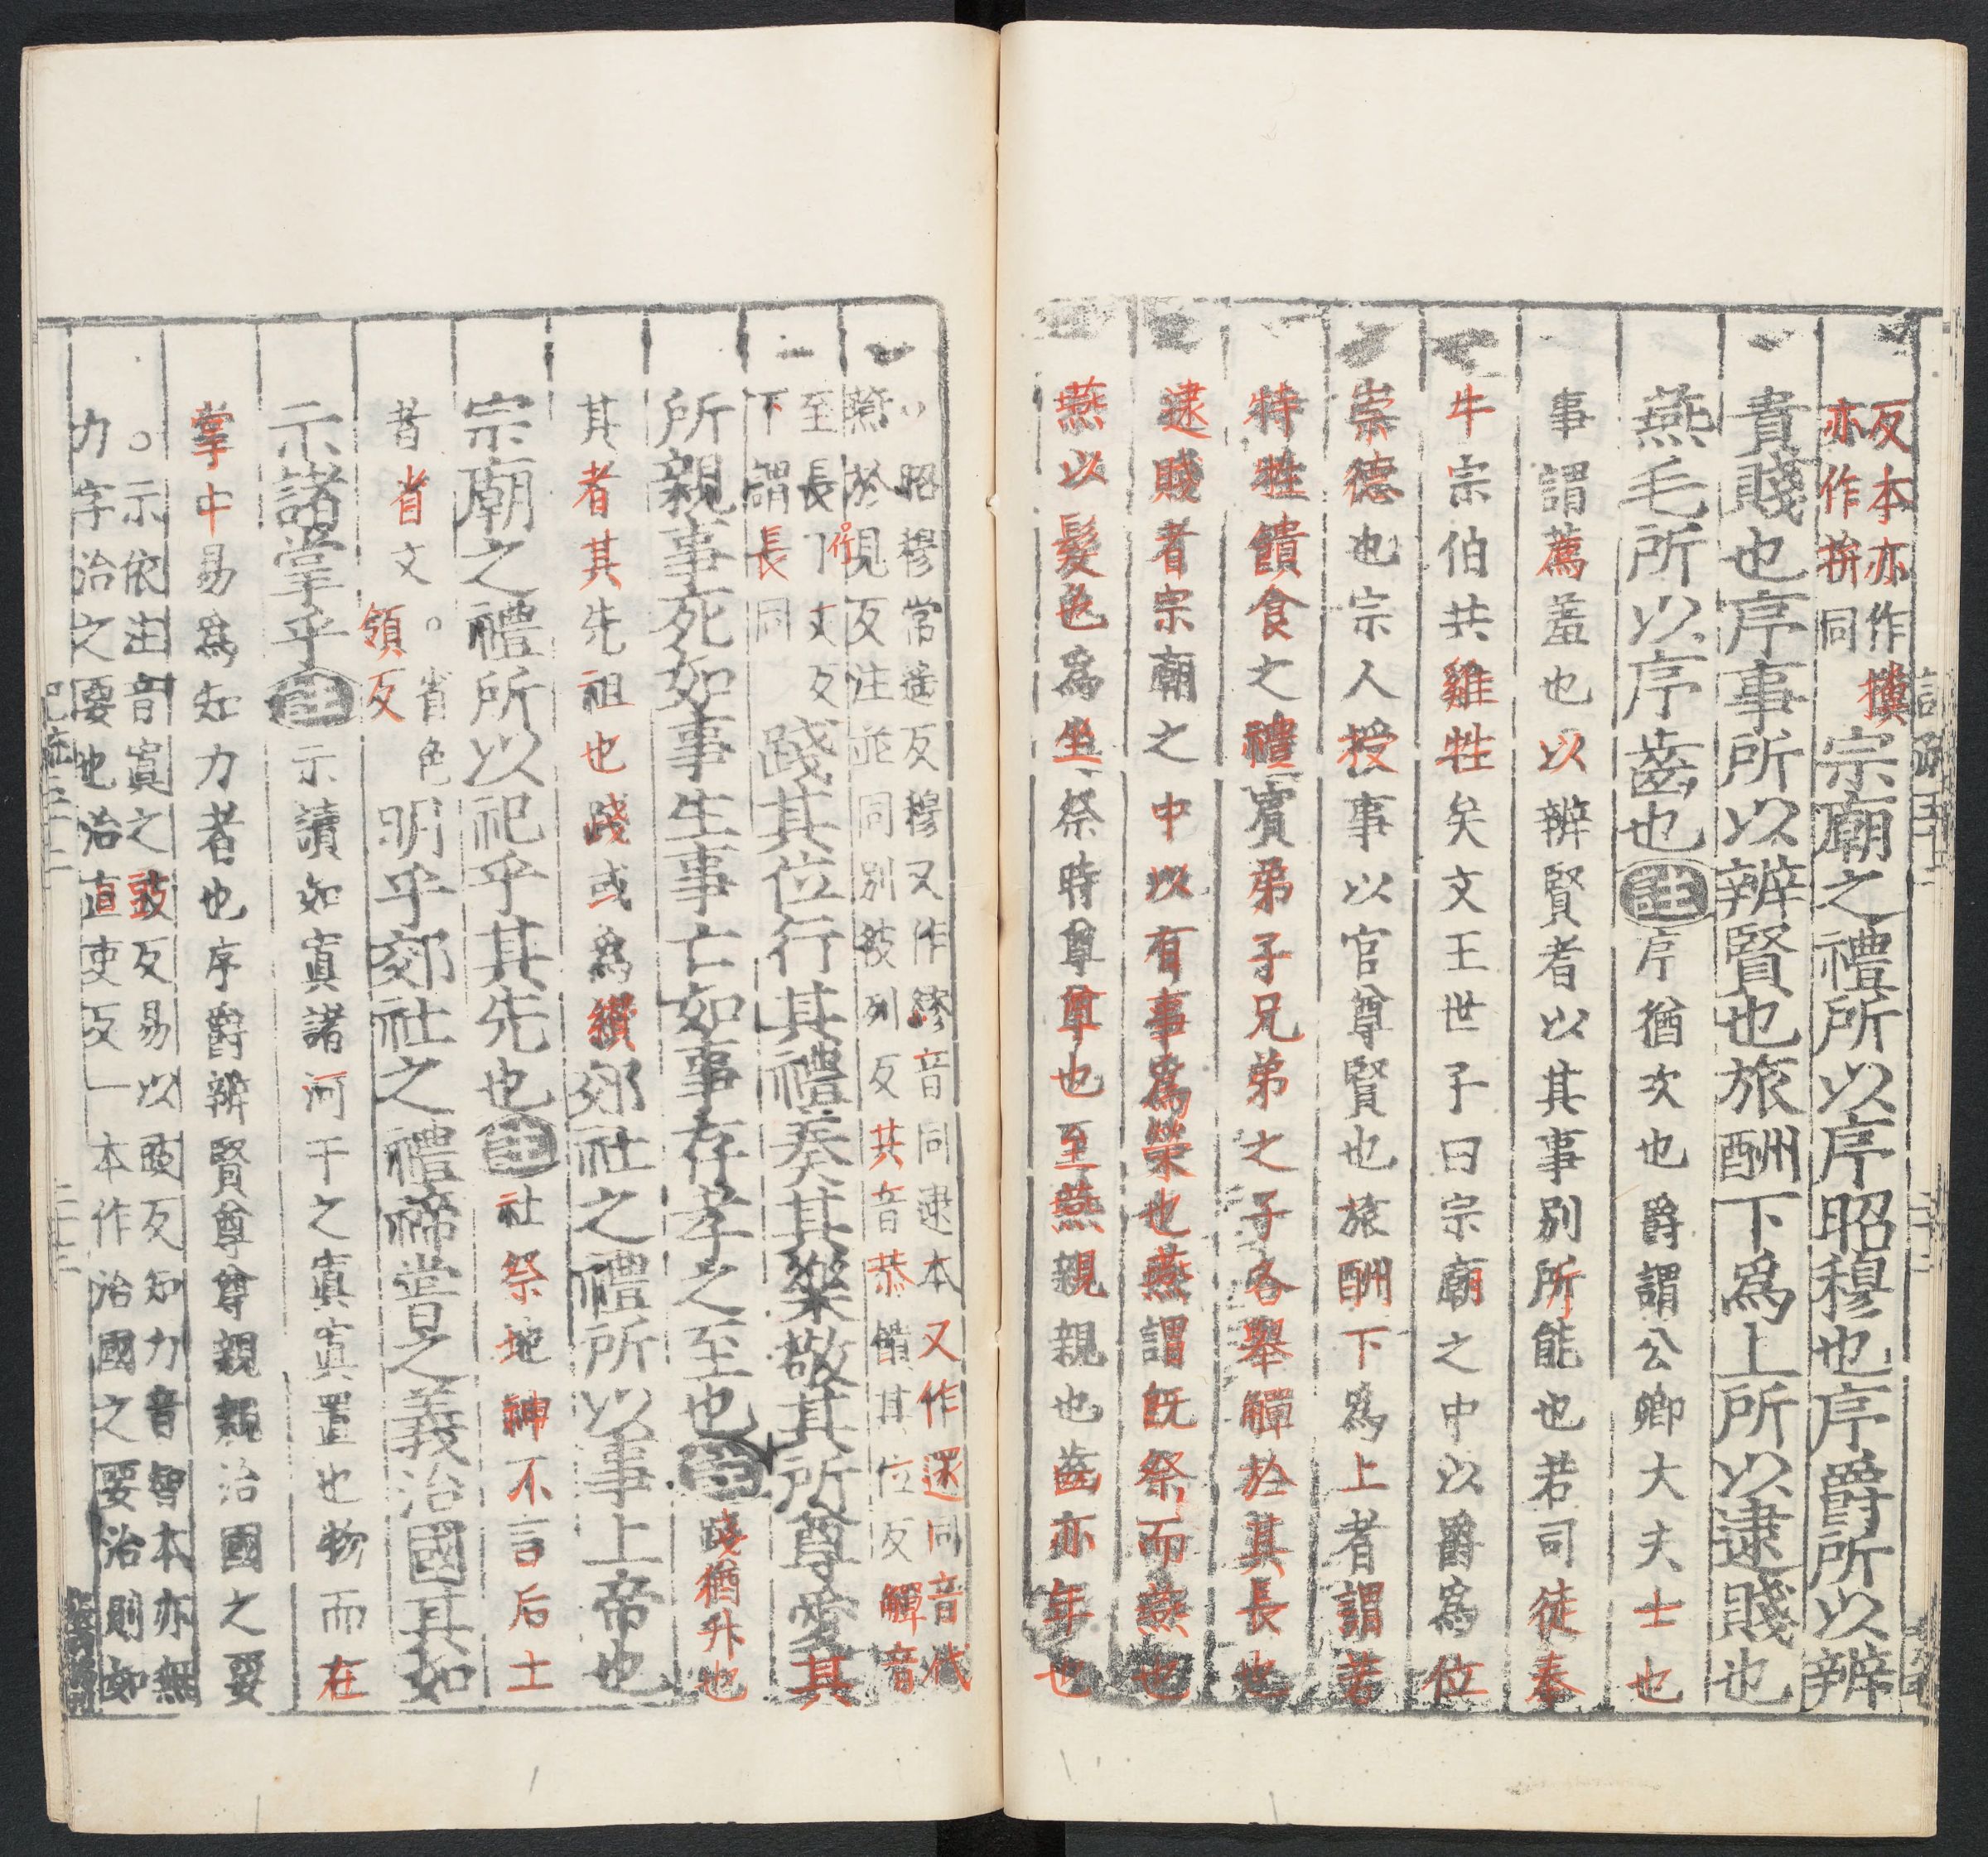 反本亦作㩴
亦作拚同
宗廟之禮所以序昭穆也序爵所以辨
貴賤也序事所以辨賢也旅酬下爲上所以逮賤也
燕毛所以序齒也註序猶次也爵謂公卿大夫士也
事謂薦羞也以辨賢者以其事別所能也若司徒奉
牛宗伯共雞牲矣文王世子曰宗廟之中以爵爲位
崇德也宗人授事以官尊賢也旅酬下爲上者謂若
特牲饋食之禮賓弟子兄弟之子各舉觶於其長也
逮賤者宗廟之中以有事爲榮也燕謂旣祭而燕也
燕以髮色爲坐祭時尊尊也至燕親親也齒亦年也
昭穆常遙反穆又作繆音同逮本又作遝同音代
燕於見反注並同別彼列反共音恭饋其位反觶音
至長丁丈反
下謂長同
踐其位行其禮奏其樂敬其所尊愛其
所親事死如事生事亡如事存孝之至也註踐猶升也
其者其先祖也踐或爲纘郊社之禮所以事上帝也
宗廟之禮所以祀乎其先也註社祭地神不言后土
者省文。省色
領反
明乎郊社之禮禘嘗之義治國其如
示諸掌乎註示讀如寘諸河干之寘寘置也物而在
掌中易爲知力者也序爵辨賢尊尊親親治國之要
。示依注音寘之豉反易以豉反知力音智本亦無
力字治之要也治直吏反一本作治國之要治則如